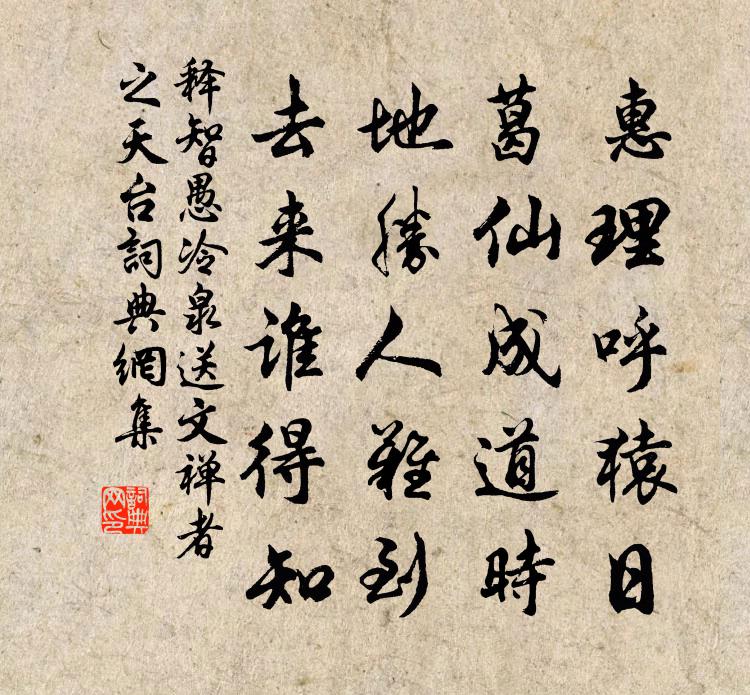 惠理呼猿日
葛仙成道時
地勝人難到
去来誰得知
释智愚冷泉送文禅者
之天台詞典網集
詞典
网印